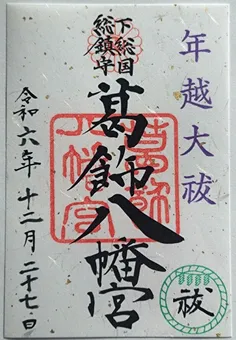 年越大祓
下総国
総鎮守
葛飾八幡宮
令和六年十二月二十七日
祓
葛飾
八幡宮